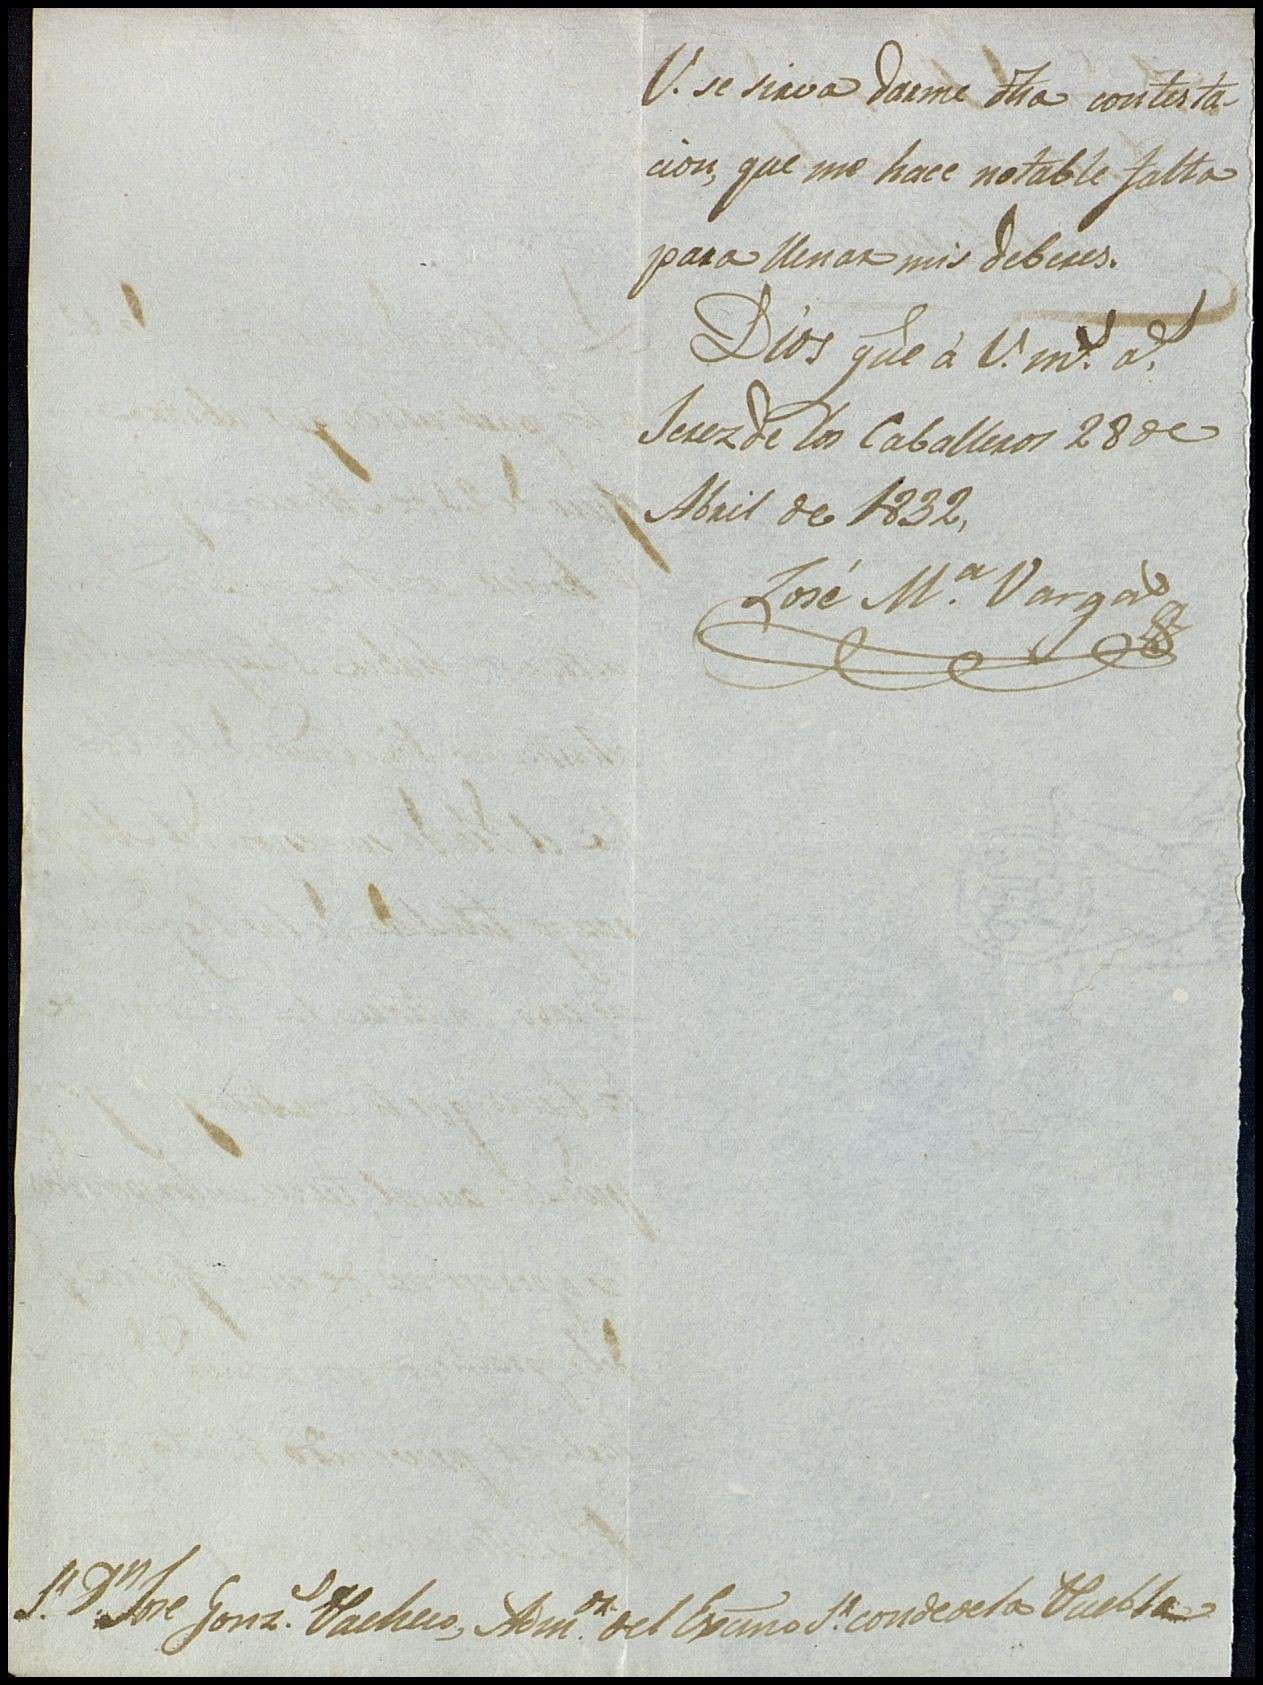 V. se sirva darme dha contesta-
cion, que me hace notable falta
para llenar mis deberes.
Dios gũe á V. ms. as.
Jerez de los Caballeros 28 de
Abril de 1832,
José Ma. Vargas
Sr. Dn. Jose Gonz.s Pacheco, Adm.or del Excmo Sr. conde de la Puebla